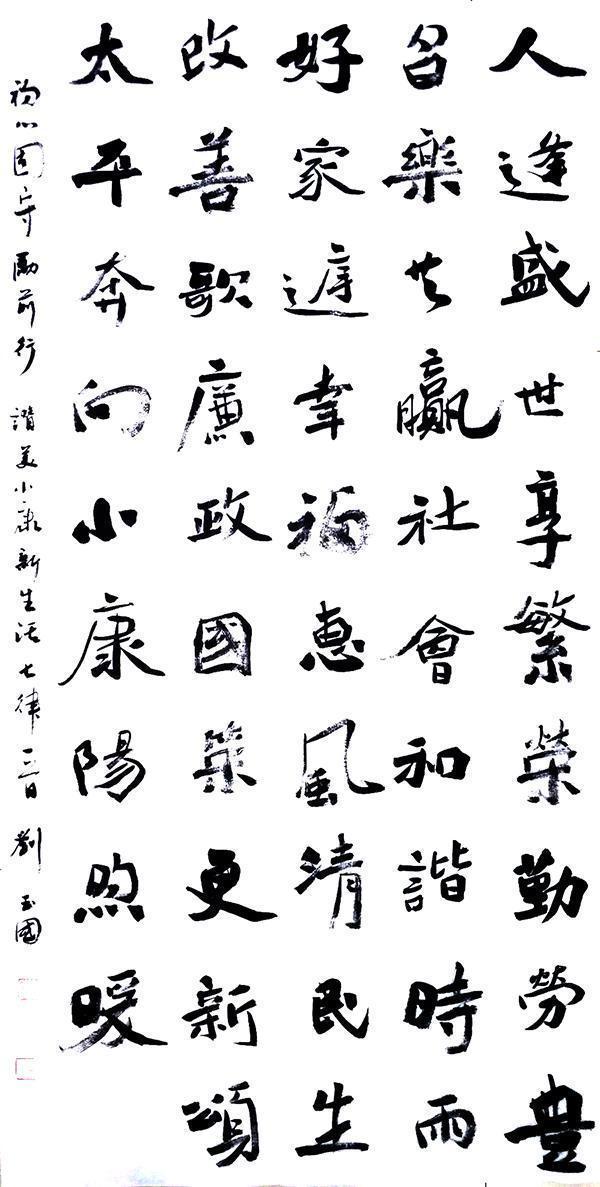 人逢盛世享繁榮勤勞豐
召樂共贏社會和諧時雨
好家遞幸福惠風清民生
改善歌廉政國策更新頌
太平奔向小康陽煦暖
初心固守勵前行 讚美小康新生活七律三首 劉玉國